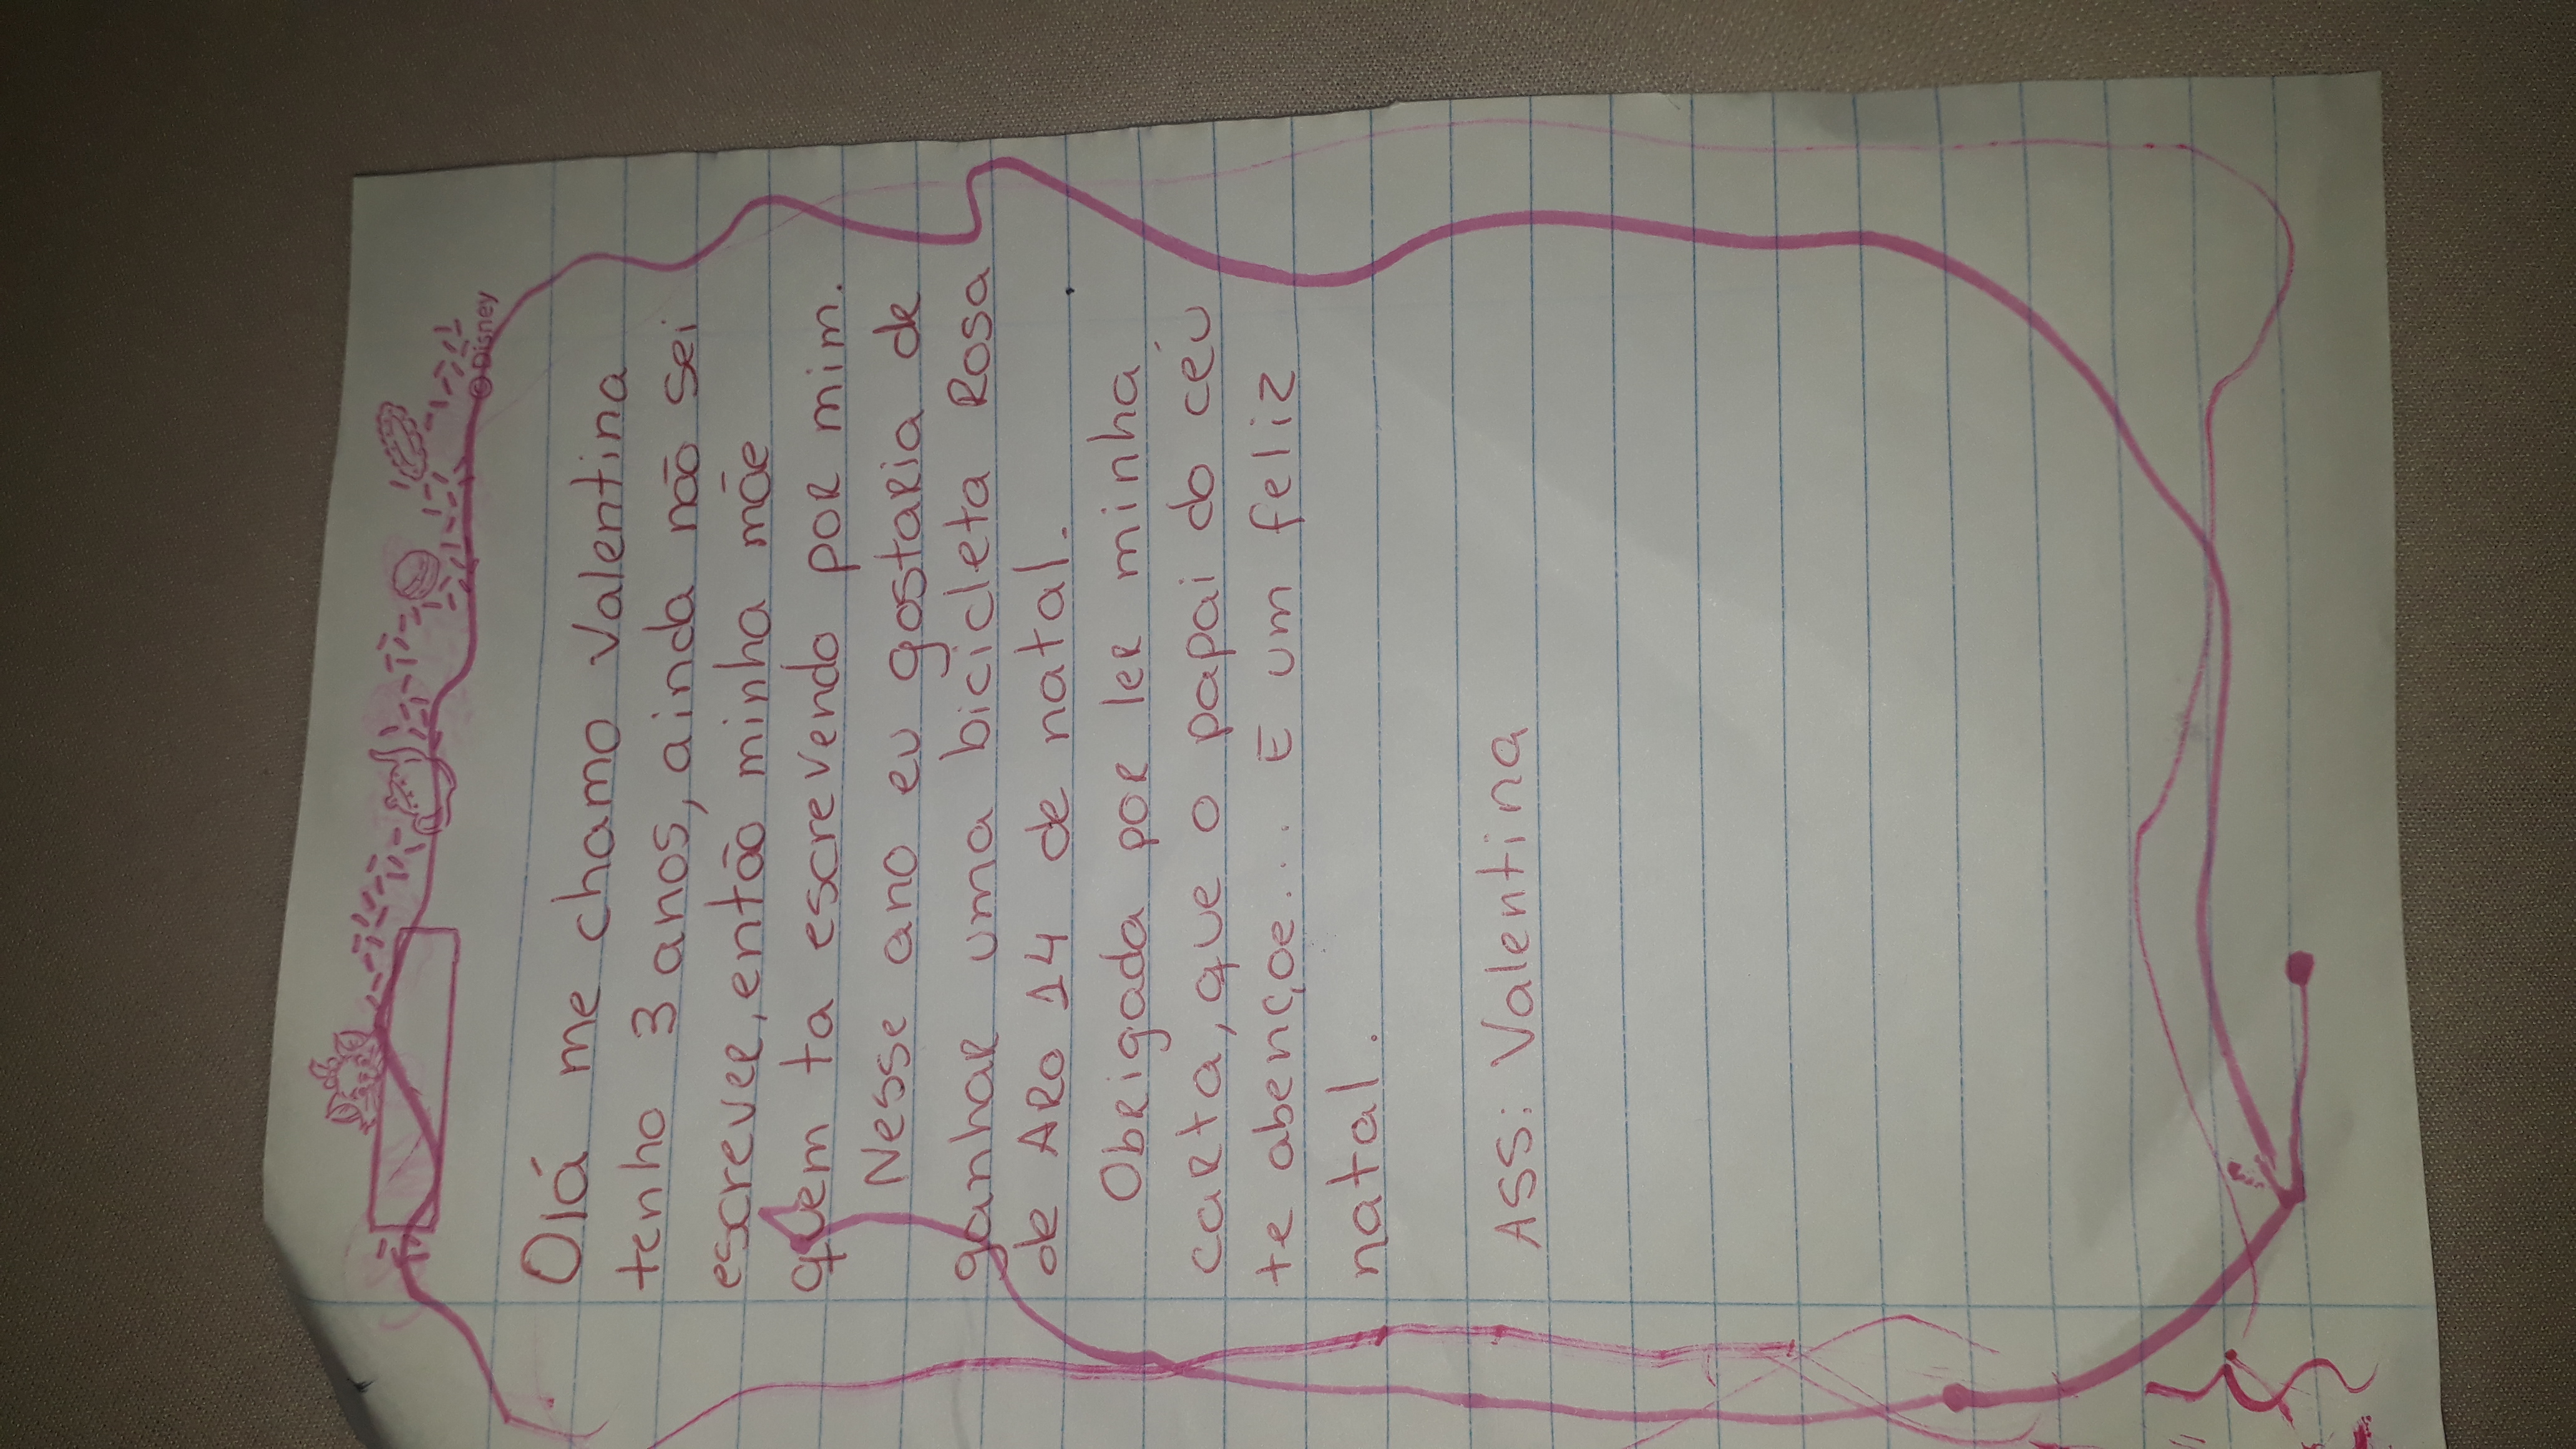 ©Disney
Olá me chamo Valentina
tenho 3 anos, ainda não sei
escrever, então minha mãe
quem ta escrevendo por mim.
Nesse ano eu gostaria de
ganhar uma bicicleta Rosa
de ARO 14 de natal.
Obrigada por ler minha
carta, que o papai do céu
te abençoe... E um feliz
natal.
ASS: Valentina